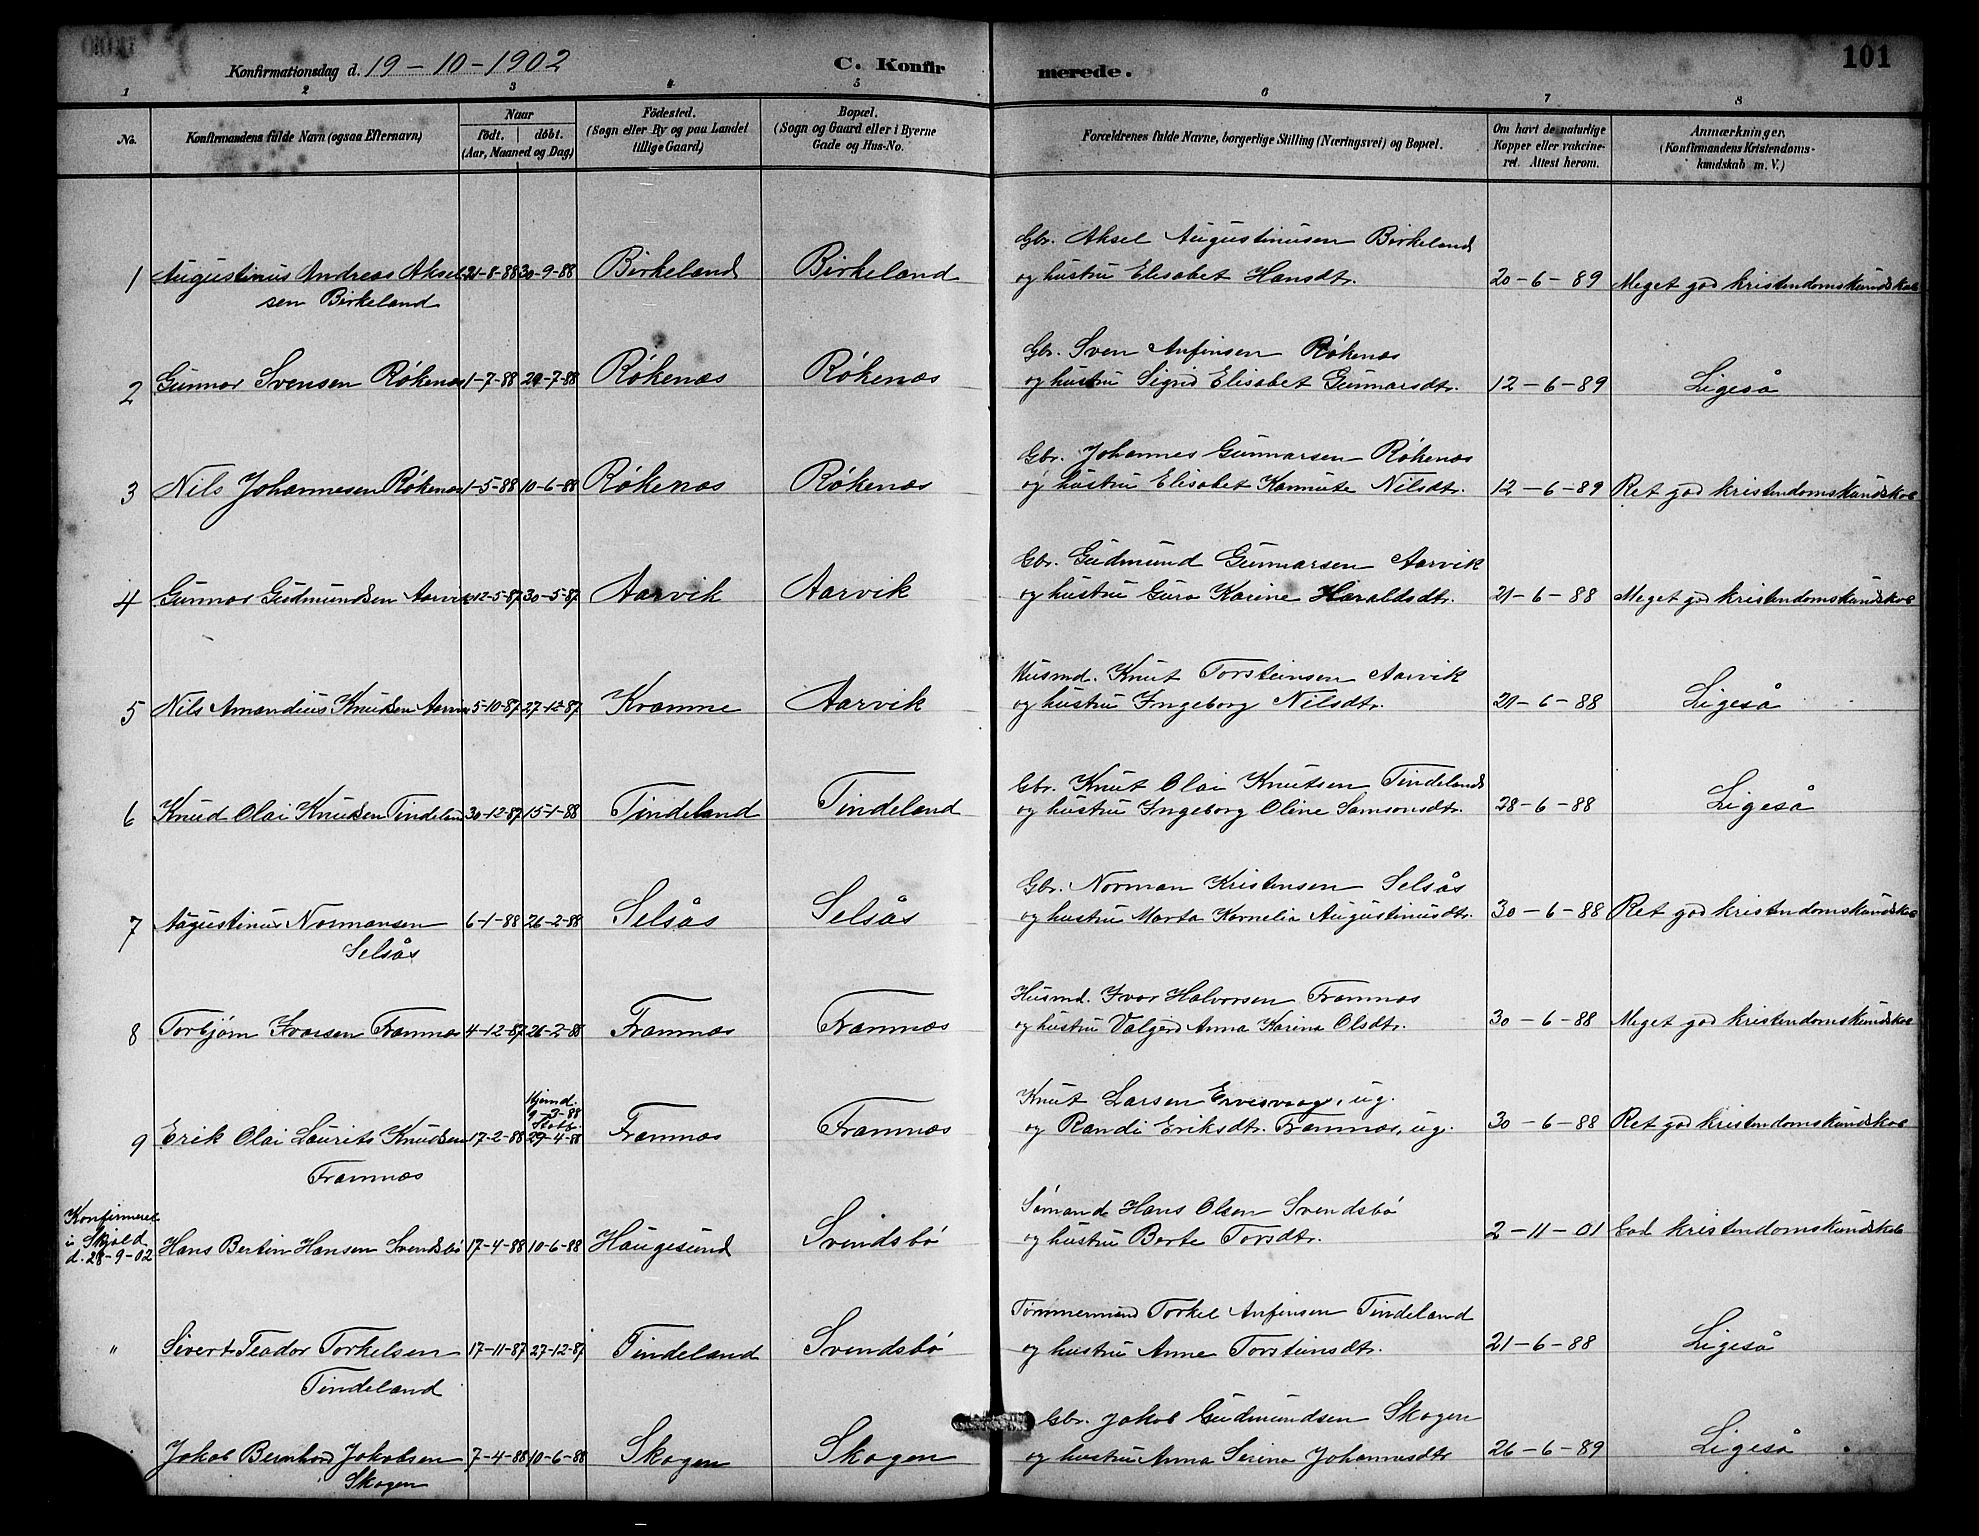 Konfirmationsdag d. 19-10-1902 C. Konfirmerede. 101
1 2 3 4 5 6 7 8
No. Konfirmandens fulde Navn (ogsaa Efternavn) Naar født. døbt. (Aar, Maaned og Dag) Fødested. (Sogn eller By og paa Landet tillige Gaard) Bopæl. (Sogn og Gaard eller i Byerne Gade og Hus-No. Forældrenes fulde Navne, borgerlige Stilling (Næringsvei) og Bopæl. Om havt de naturlige Kopper eller vakcineret. Attest herom. Anmærkninger. (Konfirmandens Kristendomskundskab m. V.)
Gbr. Aksel Augustinusen Birkeland
1 Augustinus Andreas Aksel- 21-8-88 30-9-88 Birkeland Birkeland og hustru Elisabet Hansdtr. 20-6-89 Meget god kristendomskundskab
sen Birkeland
Gbr. Sven Anfinsen Røkenæs
2 Gunnar Svensen Røkenæs 1-7-88 29-7-88 Røkenæs Røkenæs og hustru Sigrid Elisabet Gunnarsdtr. 12-6-89 Ligeså
Gbr. Johannes Gunnarsen Røkenæs
3 Nils Johannesen Røkenæs 1-5-88 10-6-88 Røkenæs Røkenæs og hustru Elisabet Kannute Nilsdtr. 12-6-89 Ret god kristendomskundskab
Gbr. Gudmund Gunnarsen Aarvik
4 Gunnar Gudmundsen Aarvik 12-5-87 30-5-87 Aarvik Aarvik og hustru Guro Karine Haraldsdtr. 21-6-88 Meget god kristendomskundskab
Husmd. Knut Torsteinsen Aarvik
5 Nils Amandius Knudsen Aarvik 5-10-87 27-12-87 Kramme Aarvik og hustru Ingeborg Nilsdtr. 21-6-88 Ligeså
Gbr. Knut Olai Knutsen Tindeland
6 Knud Olai Knudsen Tindeland 30-12-87 15-1-88 Tindeland Tindeland og hustru Ingeborg Oline Samsonsdtr. 28-6-88 Ligeså
Gbr. Norman Kristensen Selsås
7 Augustinus Normansen 6-1-88 26-2-88 Selsås Selsås og hustru Marta Kornelia Augustinusdtr. 30-6-88 Ret god kristendomskundskab
Selsås
Husmd. Ivar Halvorsen Framnæs
8 Torbjørn Ivarsen Framnæs 4-12-87 26-2-88 Framnæs Framnæs og hustru Valgerd Anna Karina Olsdtr. 30-6-88 Meget god kristendomskundskab
Hjemd.
9-3-88 Knut Larsen Ervesvaag, ug.
9 Erik Olai Laurits Knudsen 17-2-88 29-4-88 Framnæs Framnæs og Randi Eriksdtr. Framnæs, ug. 30-6-88 Ret god kristendomskundskab
Framnæs
Konfirmeret
i Skjold Sømand Hans Olsen Svendsbø
d. 28-9-02 Hans Bertin Hansen Svendsbø 17-4-88 10-6-88 Haugesund Svendsbø og hustru Berte Torsdtr. 2-11-01 God kristendomskundskab
Tømmermand Torkel Anfinsen Tindeland
" Sivert Teodor Torkelsen 17-11-87 27-12-87 Tindeland Svendsbø og hustru Anne Torsteinsdtr. 21-6-88 Ligeså
Tindeland
Gbr. Jakob Gudmundsen Skogen
Jakob Bernhard Jakobsen 7-4-88 10-6-88 Skogen Skogen og hustru Anna Serina Johannesdtr 26-6-89 Ligeså
Skogen